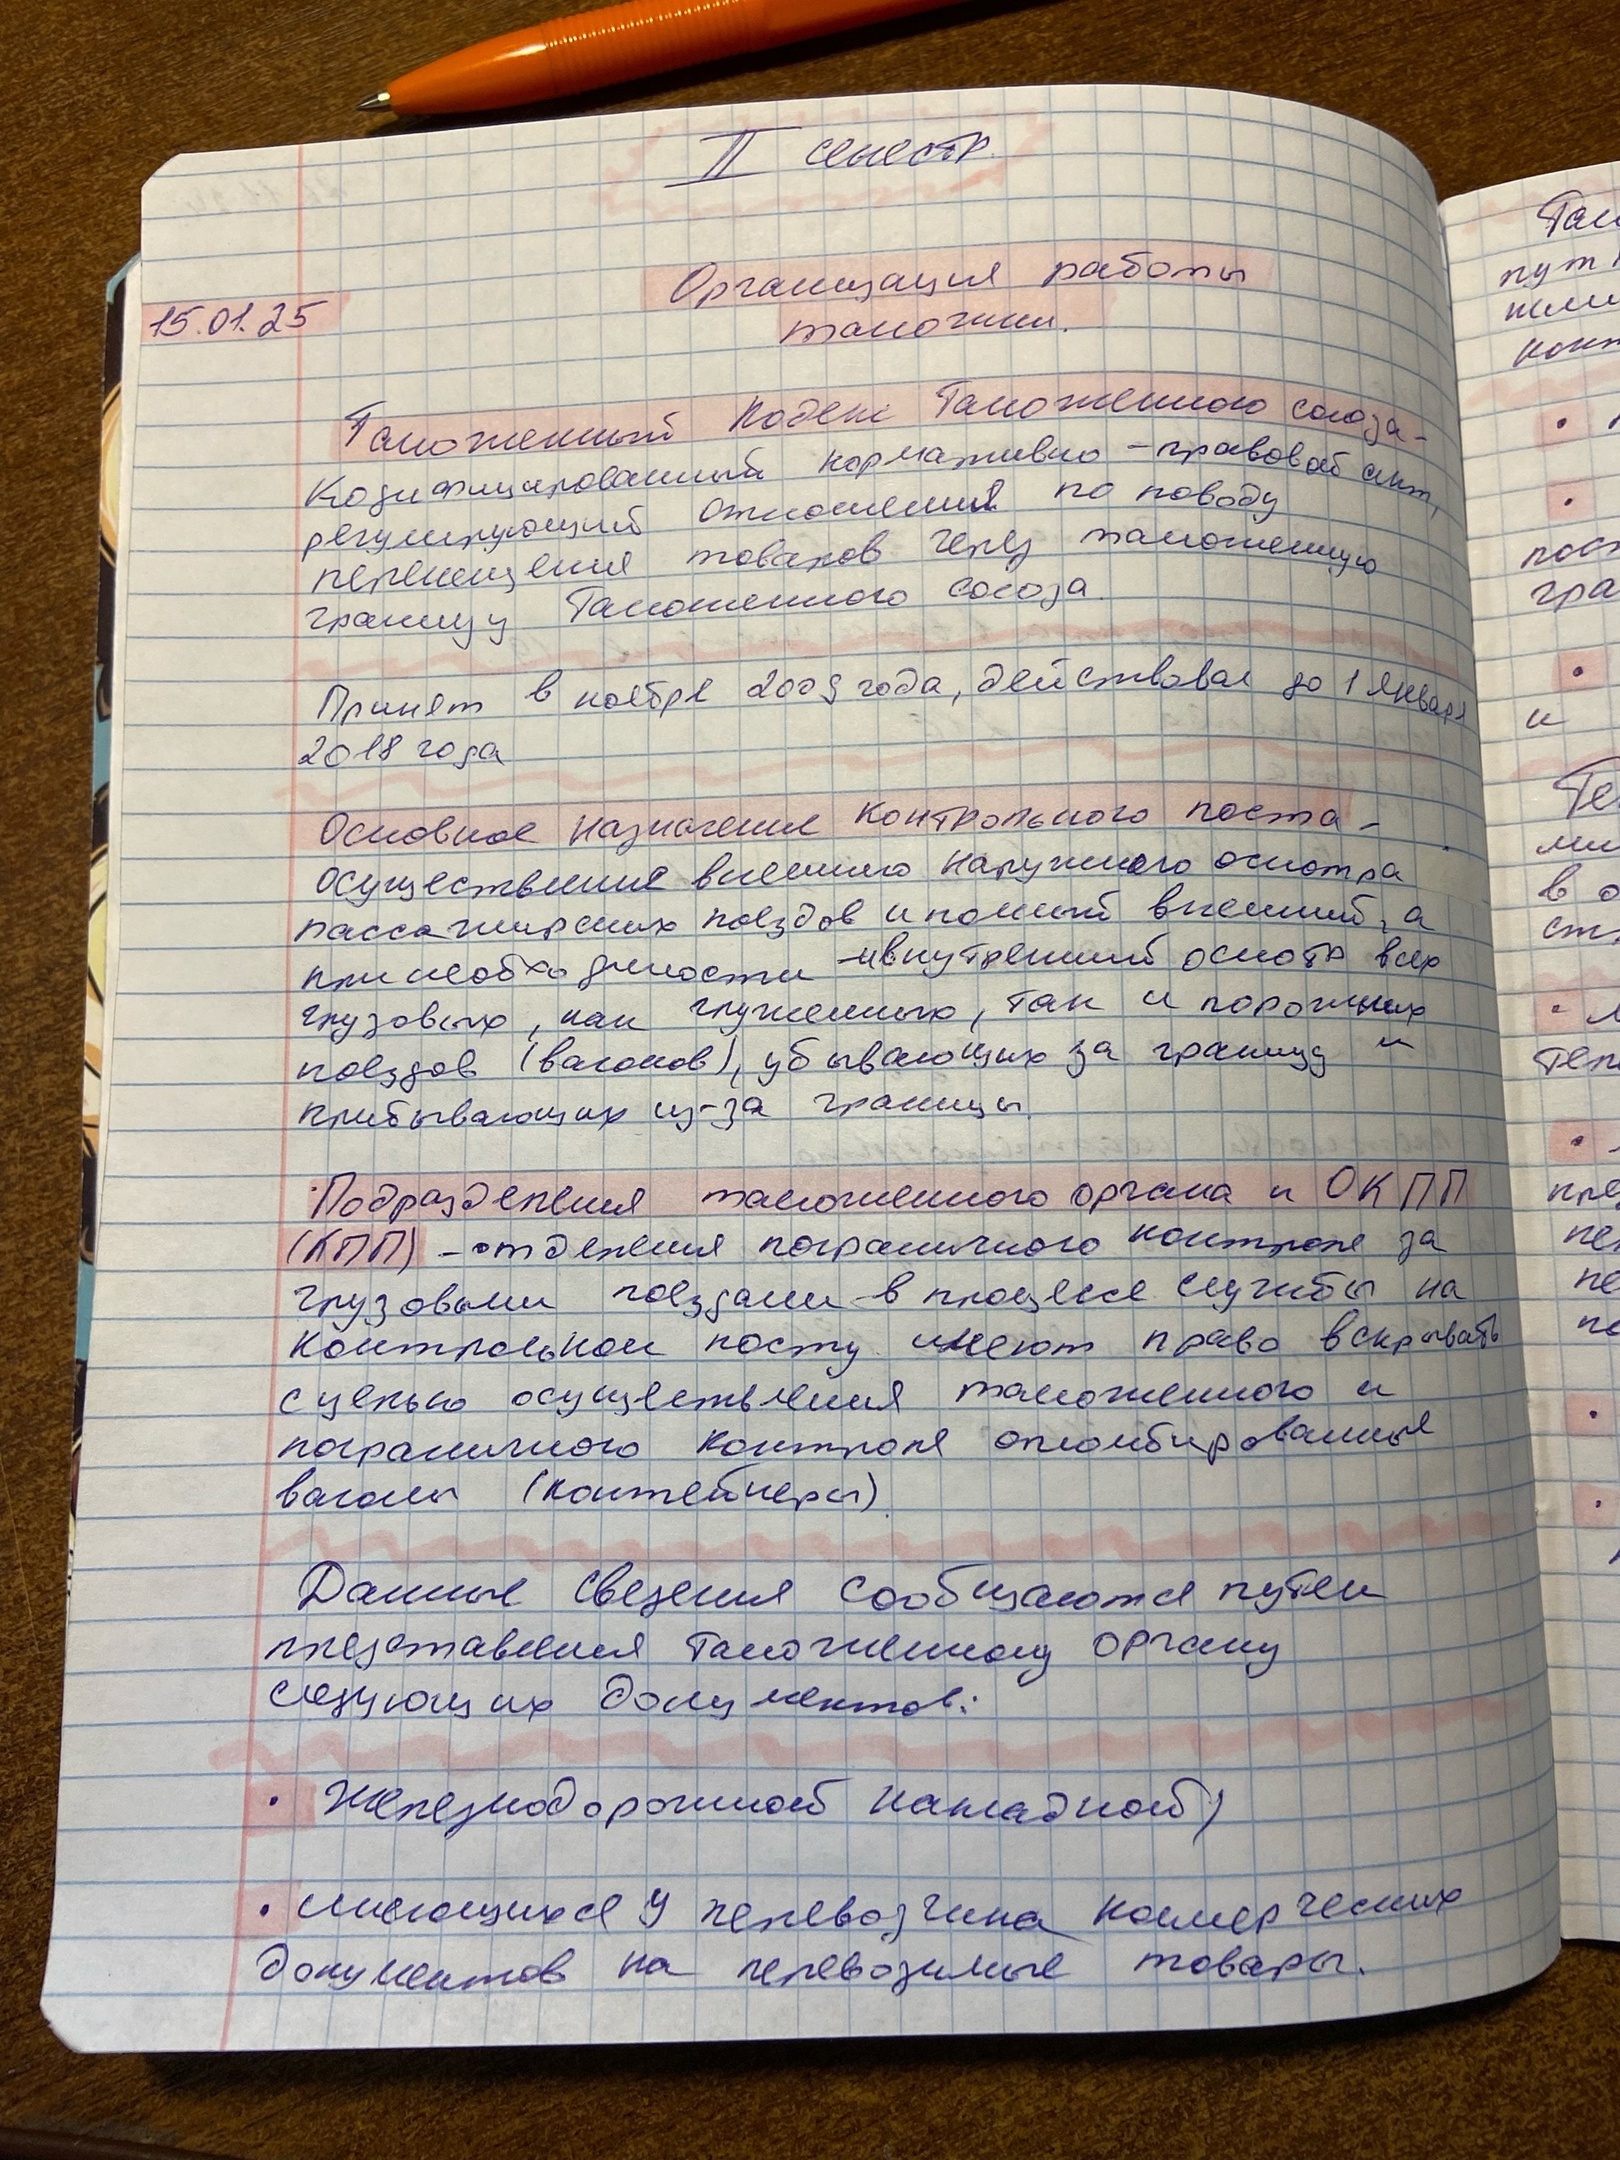 II семестр
Организация работы
15.01.25
таможни.
Таможенный кодекс Таможенного союза-
Кодифицированный нормативно-правовой акт,
регулирующий отношения по поводу
перемещения товаров через таможенную
границу Таможенного союза.
Принят в ноябре 2009 года, действовал до 1 января
2018 года
Основное назначение контрольного поста -
осуществление внешнего наружного осмотра
пассажирских поездов и полный внешний, а
при необходимости -и внутренний осмотр всех
грузовых, как груженных, так и порожних
поездов (вагонов), убывающих за границу и
прибывающих из-за границы.
Подразделения таможенного органа и ОКПП
(КПП) - отделения пограничного контроля за
грузовыми поездами в процессе службы на
контрольном посту имеют право вскрывать
с целью осуществления таможенного и
пограничного контроля опломбированные
вагоны (контейнеры).
Данные сведения сообщаются путем
представления таможенному органу
следующих документов:
• Железнодорожной накладной;
• имеющихся у перевозчика комерческих
документов на перевозимые товары.